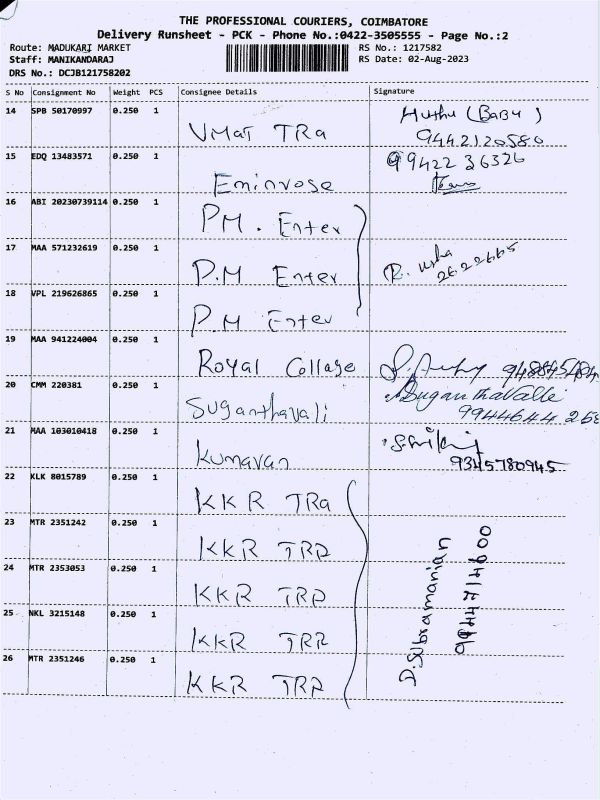 THE PROFESSIONAL COURIERS, COIMBATORE
Delivery Runsheet - PCK - Phone No.:0422-3505555 - Page No.:2
Route: MADUKARI MARKET
RS No.: 1217582
Staff: MANIKANDARAJ
RS Date: 02-Aug-2023
DRS No.: DCJB121758202
S No Consignment No Weight PCS Consignee Details Signature
14 SPB 50170997 0.250 1
VMat TRa
Muthu (BaBu)
9442120580
15 EDQ 13483571 0.250 1
Eminrose
9942236326
16 ABI 20230739114 0.250 1
PM. Enter
17 MAA 571232619 0.250 1
P.M Enter
R. Usha
2622665
18 VPL 219626865 0.250 1
P.M Enter
19 MAA 941224004 0.250 1
Royal Collage
20 CMM 220381 0.250 1
Suganthavali
Suganthavalle
9944644268
21 MAA 103010418 0.250 1
Kumavan
9345780945
22 KLK 8015789 0.250 1
KKR TRa
23 MTR 2351242 0.250 1
KKR TRP
24 MTR 2353053 0.250 1
KKR TRP
25 NKL 3215148 0.250 1
KKR TRP
26 MTR 2351246 0.250 1
KKR TRP
D.Subramanian